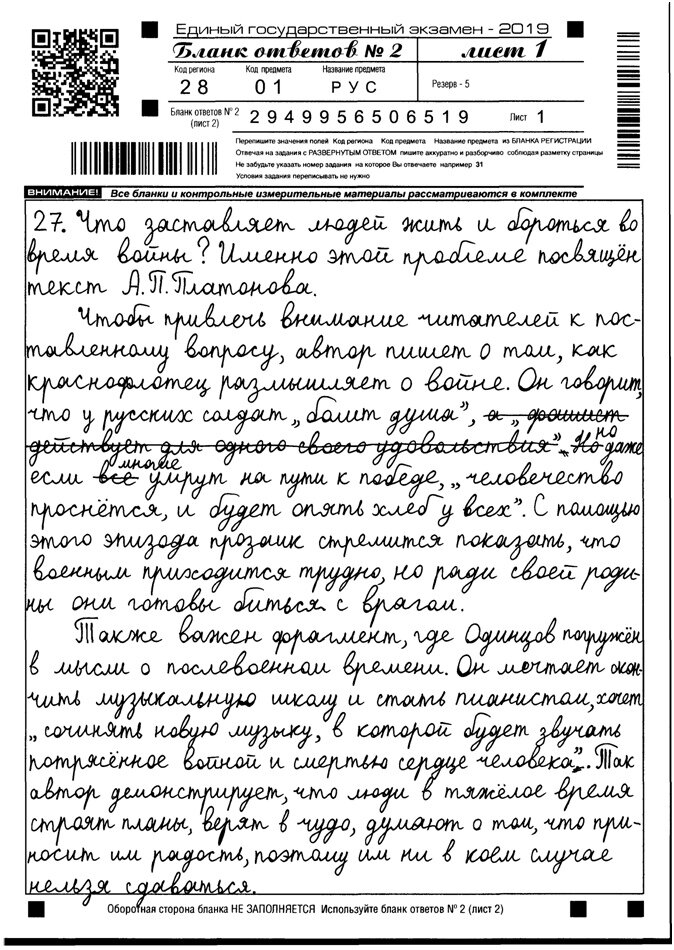 Единый государственный экзамен - 2019
Бланк ответов № 2 лист 1
Код региона Код предмета Название предмета
28 01 РУС Резерв - 5
Бланк ответов № 2 (лист 2) 2949956506519 Лист 1
Перепишите значения полей Код региона Код предмета Название предмета из БЛАНКА РЕГИСТРАЦИИ
Отвечая на задания с РАЗВЕРНУТЫМ ОТВЕТОМ пишите аккуратно и разборчиво соблюдая разметку страницы
Не забудьте указать номер задания на которое Вы отвечаете например 31
Условия задания переписывать не нужно
ВНИМАНИЕ! Все бланки и контрольные измерительные материалы рассматриваются в комплекте
27. Что заставляет людей жить и бороться во
время войны? Именно этой проблеме посвящён
текст А.П.Платонова.
Чтобы привлечь внимание читателей к пос-
тавленному вопросу, автор пишет о том, как
краснофлотец размышляет о войне. Он говорит,
что у русских солдат „болит душа”, а „фашист
действует для одного своего удовольствия”. Но но даже
если все многие умрут на пути к победе, „человечество
проснётся, и будет опять хлеб у всех”. С помощью
этого эпизода прозаик стремится показать, что
военным приходится трудно, но ради своей роди-
ны они готовы биться с врагом.
Также важен фрагмент, где Одинцов погружён
в мысли о послевоенном времени. Он мечтает окон-
чить музыкальную школу и стать пианистом, хочет
„сочинять новую музыку, в которой будет звучать
потрясённое войной и смертью сердце человека”. Так
автор демонстрирует, что люди в тяжёлое время
строят планы, верят в чудо, думают о том, что при-
носит им радость, поэтому им ни в коем случае
нельзя сдаваться.
Оборотная сторона бланка НЕ ЗАПОЛНЯЕТСЯ Используйте бланк ответов № 2 (лист 2)